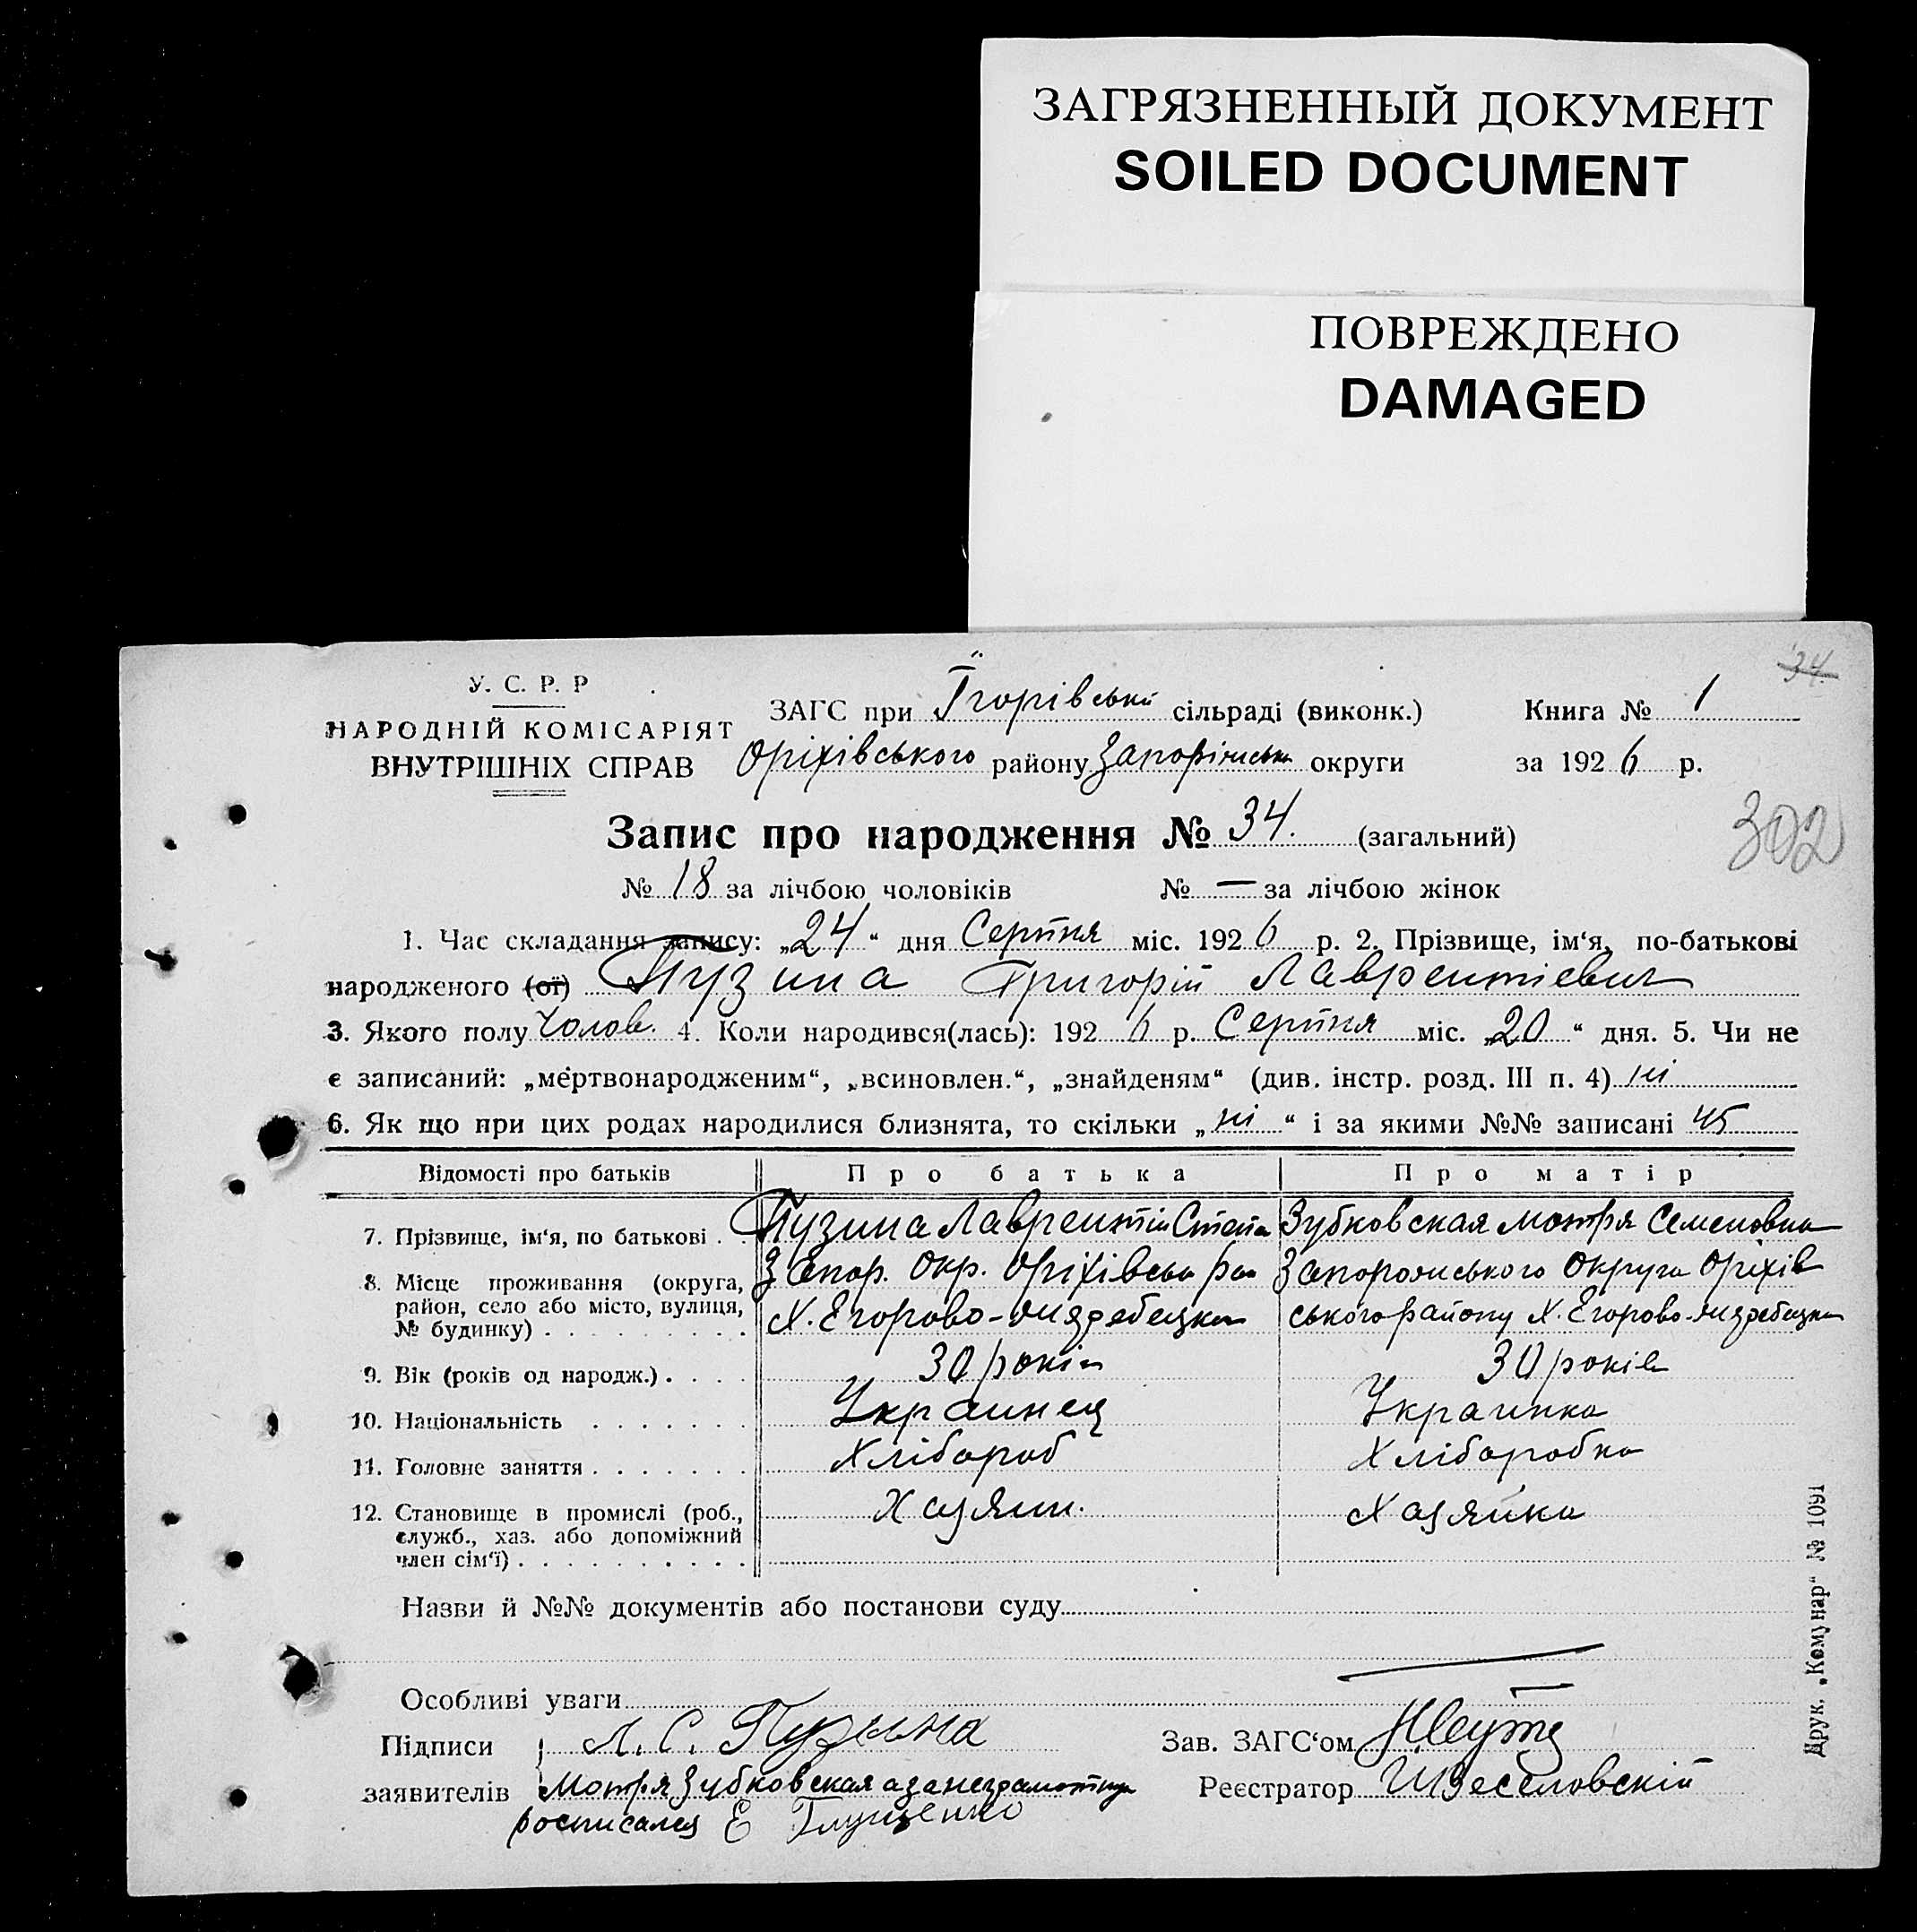 ЗАГРЯЗНЕННЫЙ ДОКУМЕНТ
SOILED DOCUMENT
ПОВРЕЖДЕНО
DAMAGED
34.
У. С. Р. Р
НАРОДНІЙ КОМІСАРІЯТ
ВНУТРІШНІХ СПРАВ
ЗАГС при сільраді (виконк.) Книга № 1
Оріхівського району округи за 1926 р.
302
Запис про народження № 34. (загальний)
№ 18 за лічбою чоловіків № — за лічбою жінок
1. Час складання запису: „24“ дня Серпня міс. 1926 р. 2. Прізвище, ім‘я, по-батькові
народженого (ої) Пузина Григорій Лаврентіевич
3. Якого полу Чолов. 4. Коли народився(лась): 1926 р. Серпня міс. „20“ дня. 5. Чи не
є записаний: „мертвонародженим“, „всиновлен.“, „знайденям“ (див. інстр. розд. III п. 4) ні
6. Як що при цих родах народилися близнята, то скільки „ні“ і за якими №№ записані
Відомості про батьків Про батька Про матір
7. Прізвище, ім‘я, по батькові . . Пузина Лаврентій Степа Зубковская Мотря Семеновна
8. Місце проживання (округа, район, село або місто, вулиця, № будинку) . . . . . . . . . Запор. Окр. Оріхівськ Запорожського Округа Оріхів
Х. Егорово- ського району Х. Егорово-
9. Вік (років од народж.) . . . . 30 років 30 років
10. Національність . . . . . . . Украинец Украинка
11. Головне заняття . . . . . . . Хлібороб Хліборобка
12. Становище в промислі (роб., служб., хаз. або допоміжний член сім‘ї) . . . . . . . . . . Хазяин. Хазяйка
Назви й №№ документів або постанови суду
Особливі уваги
Підписи Л. С. Пузына Зав. ЗАГС‘ом
заявителів Мотря Зубковская а за неграмотную Реєстратор Веселовскій
росписался Е Глущенко
Друк. „Комунар“ № 1091